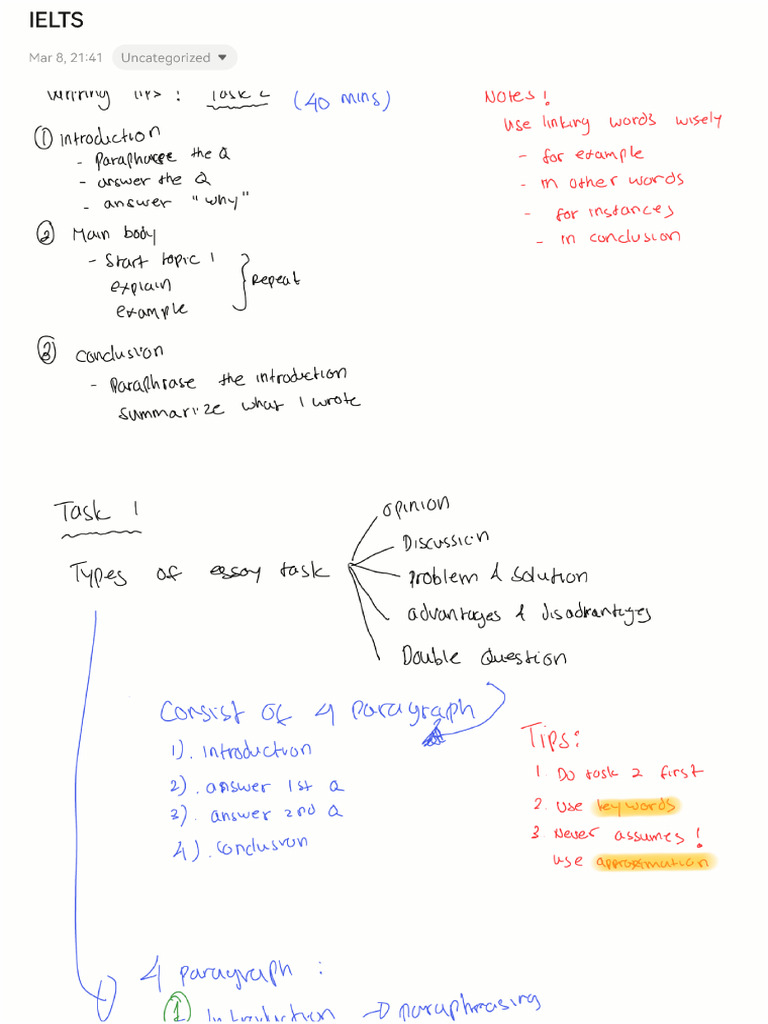 IELTS
Mar 8, 21:41 Uncategorized
Writing Tips : Task 2 (40 mins)
① Introduction
- Paraphrase the Q
- answer the Q
- answer "why"
② Main body
- Start topic 1
explain
example
Repeat
③ Conclusion
- Paraphrase the introduction
summarize what I wrote
Notes!
Use linking words wisely
- for example
- in other words
- for instances
- in conclusion
Task 1
Types of essay task
opinion
Discussion
problem & solution
advantages & disadvantages
Double Question
Consist of 4 paragraph
1). introduction
2). answer 1st Q
3). answer 2nd Q
4). Conclusion
Tips:
1. Do task 2 first
2. Use keywords
3 Never assumes!
use approximation
4 paragraph :
① Introduction → paraphrasing